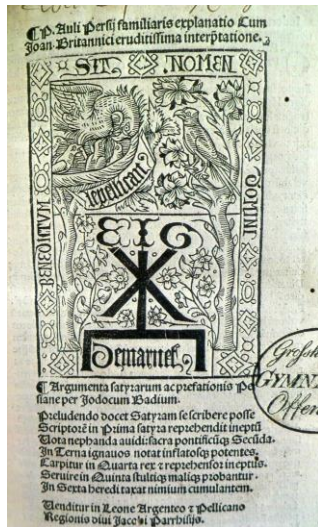 ¶P. Auli Persij familiaris explanatio Cum
Joan. Britannici eruditissima interp̃tatione.
SIT NOMEN
DOMINI
BENEDICTVM
lepelican
EIG
Demarnef
Grossh
GYMN
Offen
¶ Argumenta satyrarum ac prefationis Per
siane per Jodocum Badium.
Preludendo docet Satyram se scribere posse
Scriptorẽ in Prima satyra reprehendit ineptũ
Uota nephanda auidi: sacra pontificũq̃ Secũda.
In Terna ignauos notat inflatosq̃ potentes.
Carpitur in Quarta rex ⁊ reprehensor ineptus.
Seruire in Quinta stultiq̃ maliq̃ probantur.
In Sexta heredi taxat nimium cumulantem.
Uenditur in Leone Argenteo ⁊ Pellicano
Regionio diui Jacobi Parrhisijs.